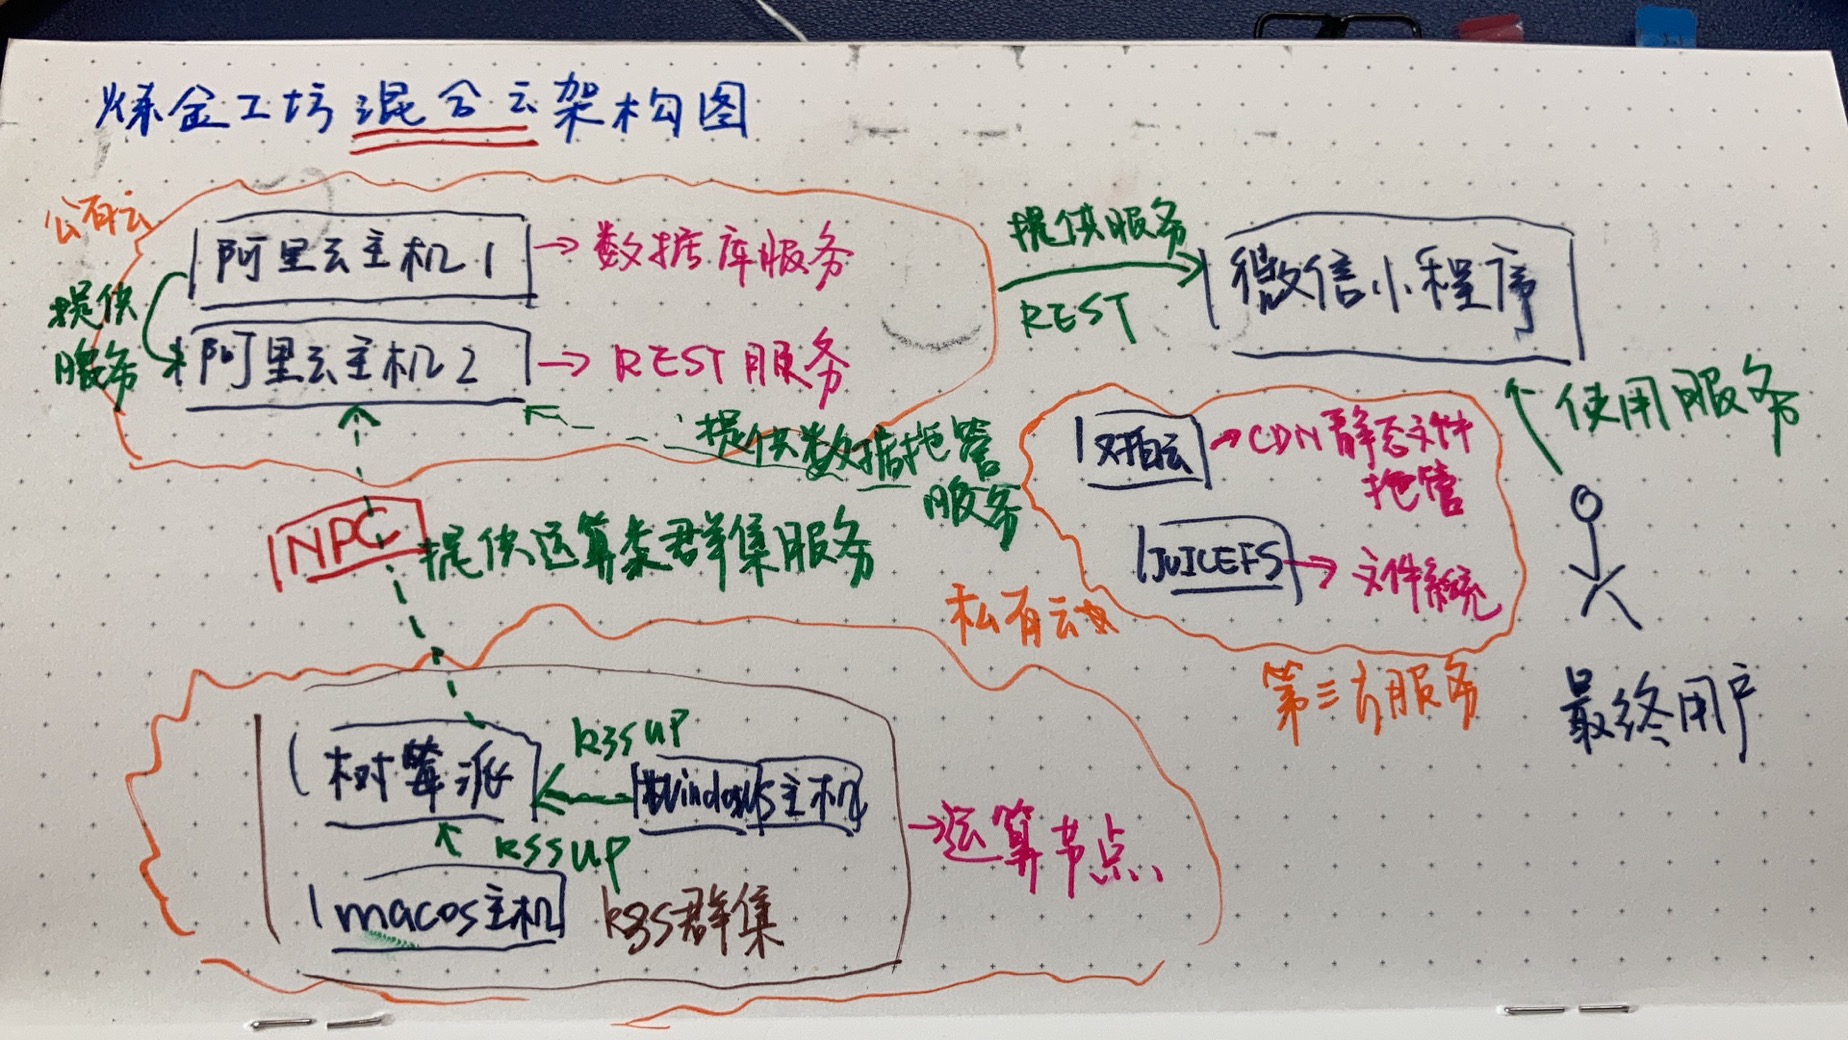 炼金工坊混合云架构图
公有云
阿里云主机1
数据库服务
提供
服务
阿里云主机2
REST服务
提供服务
REST
微信小程序
使用服务
提供数据拖管
服务
又拍云
CDN静态文件
拖管
JUICEFS
文件系统
第三方服务
最终用户
NPC
提供运算类群集服务
私有云
树莓派
k3sup
Windows主机
k3sup
macos主机
k3s群集
运算节点